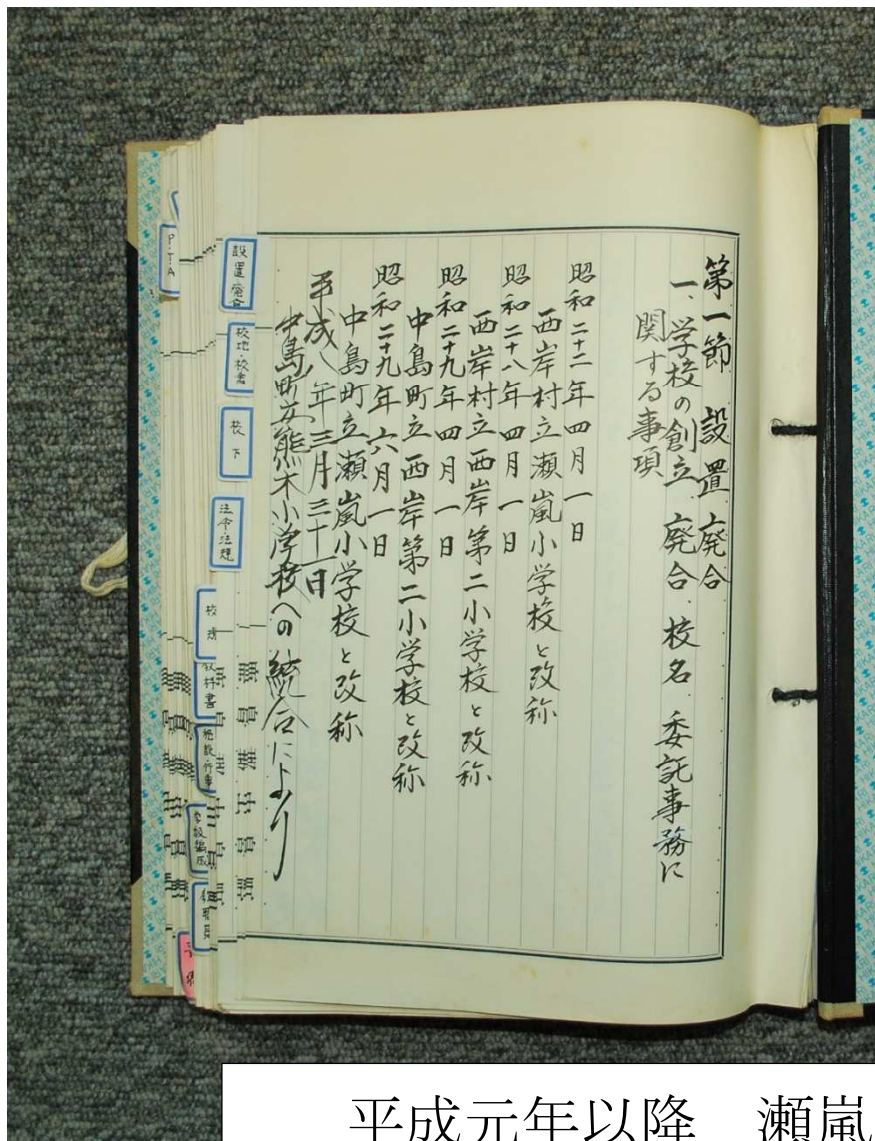 第一節　設置　廃合
一、学校の創立　廃合．校名．委託事務に
関する事項
昭和二十二年四月一日
西岸村立瀬嵐小学校と改称
昭和二十八年四月一日
西岸村立西岸第二小学校と改称
昭和二十九年四月一日
中島町立西岸第二小学校と改称
昭和二十九年六月一日
中島町立瀬嵐小学校と改称
平成八年三月三十一日
中島町立熊木小学校への統合により
設置廃合
校地・校舎
校下
法令法規
教科書
P.T.A
平成元年以降　瀬嵐